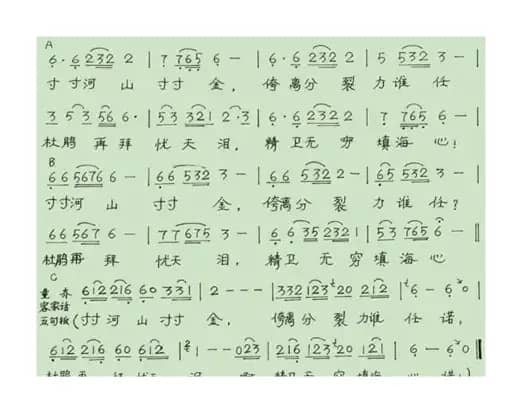 A
6·6 232 2 | 7 765 6 — | 6·6 232 2 | 5 532 3 — |
寸寸河 山 寸寸 金, 侉离分 裂 力谁 任
3 5 3 56 6· | 53 321 2·3 | 6·6 232 2 | 7 765 6 — |
杜鹃 再拜 忧天 泪, 精卫无 穷 填海 心!
B
66 5676 6 — | 66 532 3 — | 66 532 2 — | 65 532 3 — |
寸寸河 山 寸寸 金, 侉离分 裂 力谁任?
66 567 6 — | 77 675 3 — | 6 6 35 2321 | 53 765 6 — ‖
杜鹃再 拜 忧天 泪, 精卫 无 穷 填海 心
C
童声 612 216 60 331 | 2 - - - | 332 123 20 212 | 6 - 6 0 |
客家话
五句板 (寸寸 河 山寸寸 金, 侉离分 裂力谁 任 诺,
612 216 60 612 | 1 - - 023 | 216 123 20 121 | 6 - 6 0 ‖